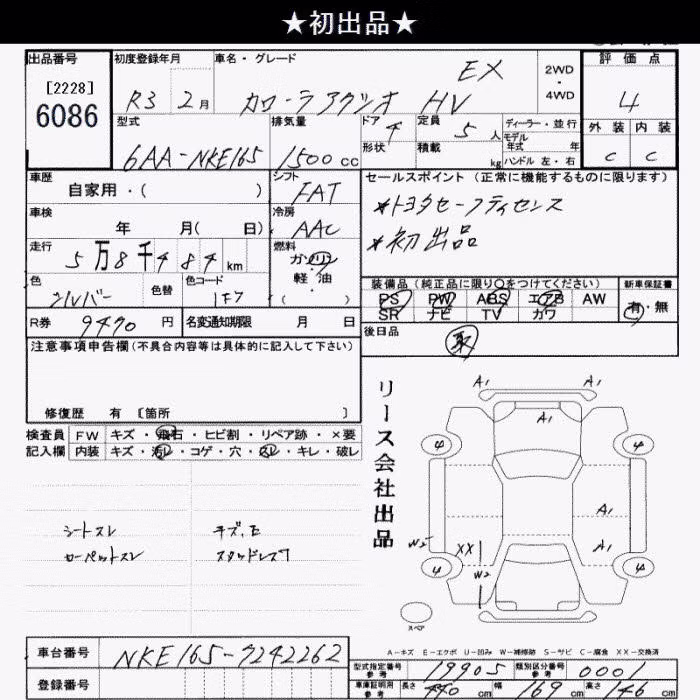 ★初出品★
出品番号 初度登録年月 車名・グレード 評価点
[2228]
6086
R3 2月 カローラアクシオ HV EX 2WD・4WD 4
型式 排気量 ドア 4 定員 5人 ディーラー・並行 外装 内装
6AA-NKE165 1500cc 形状 積載 kg モデル年式 年 ハンドル 左・右 C C
車歴 シフト セールスポイント(正常に機能するものに限ります)
自家用・( ) FAT *トヨタセーフティセンス
車検 冷房 *初出品
年 月( 日) AAC
走行 燃料
5万8千484km ガソリン・軽油
( )
色 色替 色コード 装備品(純正品に限り○をつけてください) 新車保証書
シルバー 1F7 PS PW ABS エアB AW 有・無
SR ナビ TV カワ
R券 9470円 名変通知期限 月 日 後日品 取
注意事項申告欄(不具合内容等は具体的に記入して下さい)
修復歴 有 [箇所 ]
検査員 FW キズ・飛石・ヒビ割・リペア跡・×要
記入欄 内装 キズ・汚レ・コゲ・穴・スレ・キレ・破レ
シートスレ キズ、E
カーペットスレ スタッドレス7
リース会社出品
A1 A1
A1
4 4
A1
W2 XX A1
4 W2 4
スペア
A-キズ E-エクボ U-凹み W-補修跡 S-サビ C-腐食 XX-交換済
車台番号 NKE165-7242262
型式指定番号 参考 19905 類別区分番号 参考 0001
登録番号 車庫証明用 参考 長さ 440cm 幅 169cm 高さ 146cm